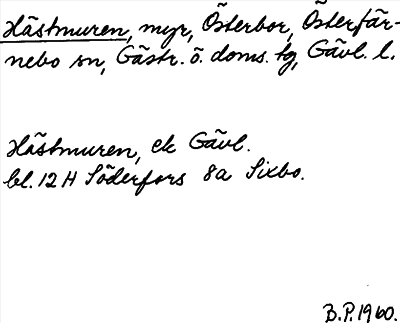 Hästmuren, myr, Österbor, Österfär-
nebo sn, Gästr. ö. doms. tg, Gävl. l.
Hästmuren, ek Gävl.
bl. 12 H Söderfors 8a Sixbo.
B.P. 1960.